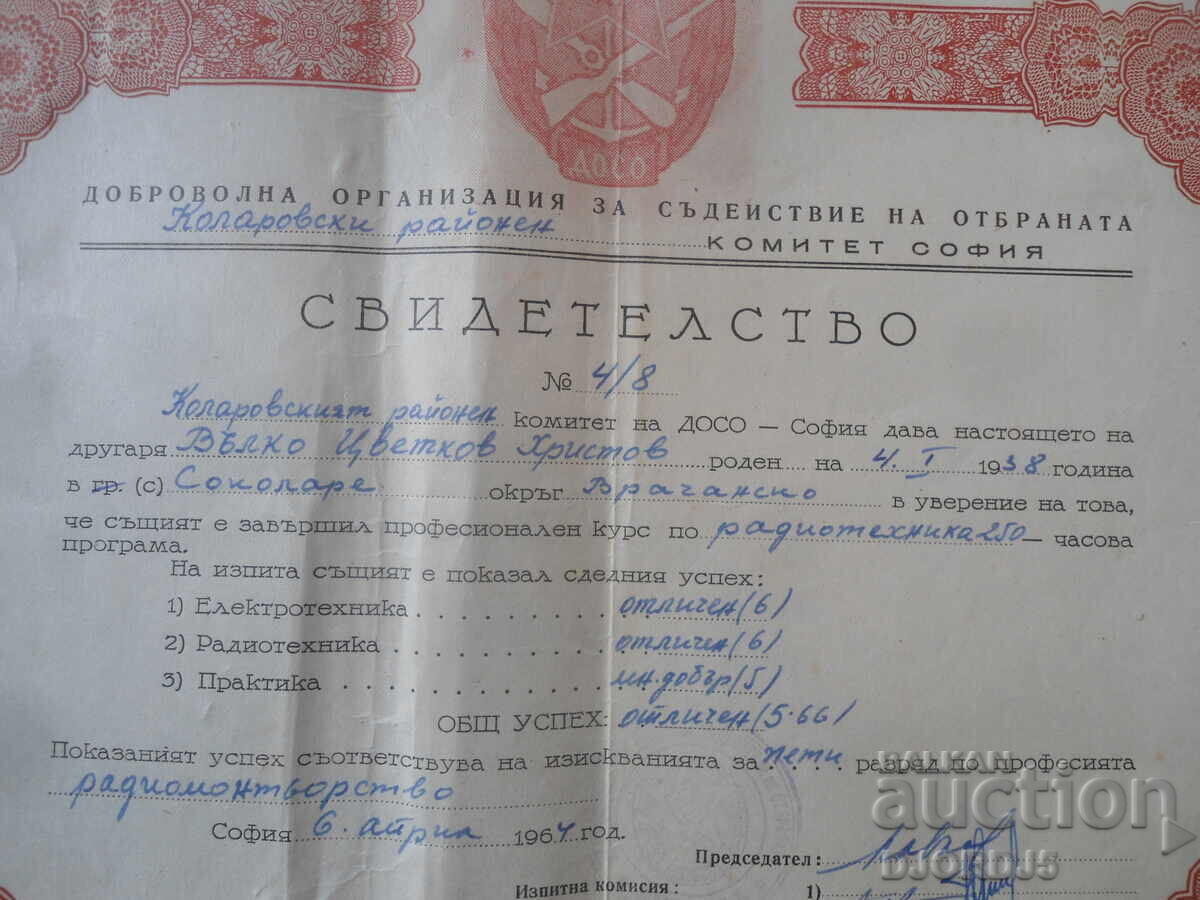 ДОСО
ДОБРОВОЛНА ОРГАНИЗАЦИЯ ЗА СЪДЕЙСТВИЕ НА ОТБРАНАТА
Коларовски районен КОМИТЕТ СОФИЯ
СВИДЕТЕЛСТВО
№ 4/8
Коларовският районен комитет на ДОСО — София дава настоящето на
другаря Вълко Цветков Христов роден на 4. I 1938 година
в гр. (с) Соколаре окръг Врачанско в уверение на това,
че същият е завършил професионален курс по радиотехника 250 — часова
програма.
На изпита същият е показал следния успех:
1) Електротехника . . . . . . . . . . отличен (6)
2) Радиотехника . . . . . . . . . . . отличен (6)
3) Практика . . . . . . . . . . . . . мн. добър (5)
ОБЩ УСПЕХ: отличен (5.66)
Показаният успех съответствува на изискванията за пети разряд по професията
радиомонтьорство
София 6. април 1964 год.
Председател:
Изпитна комисия: 1)
BALKAN
auction
DJORDJ5